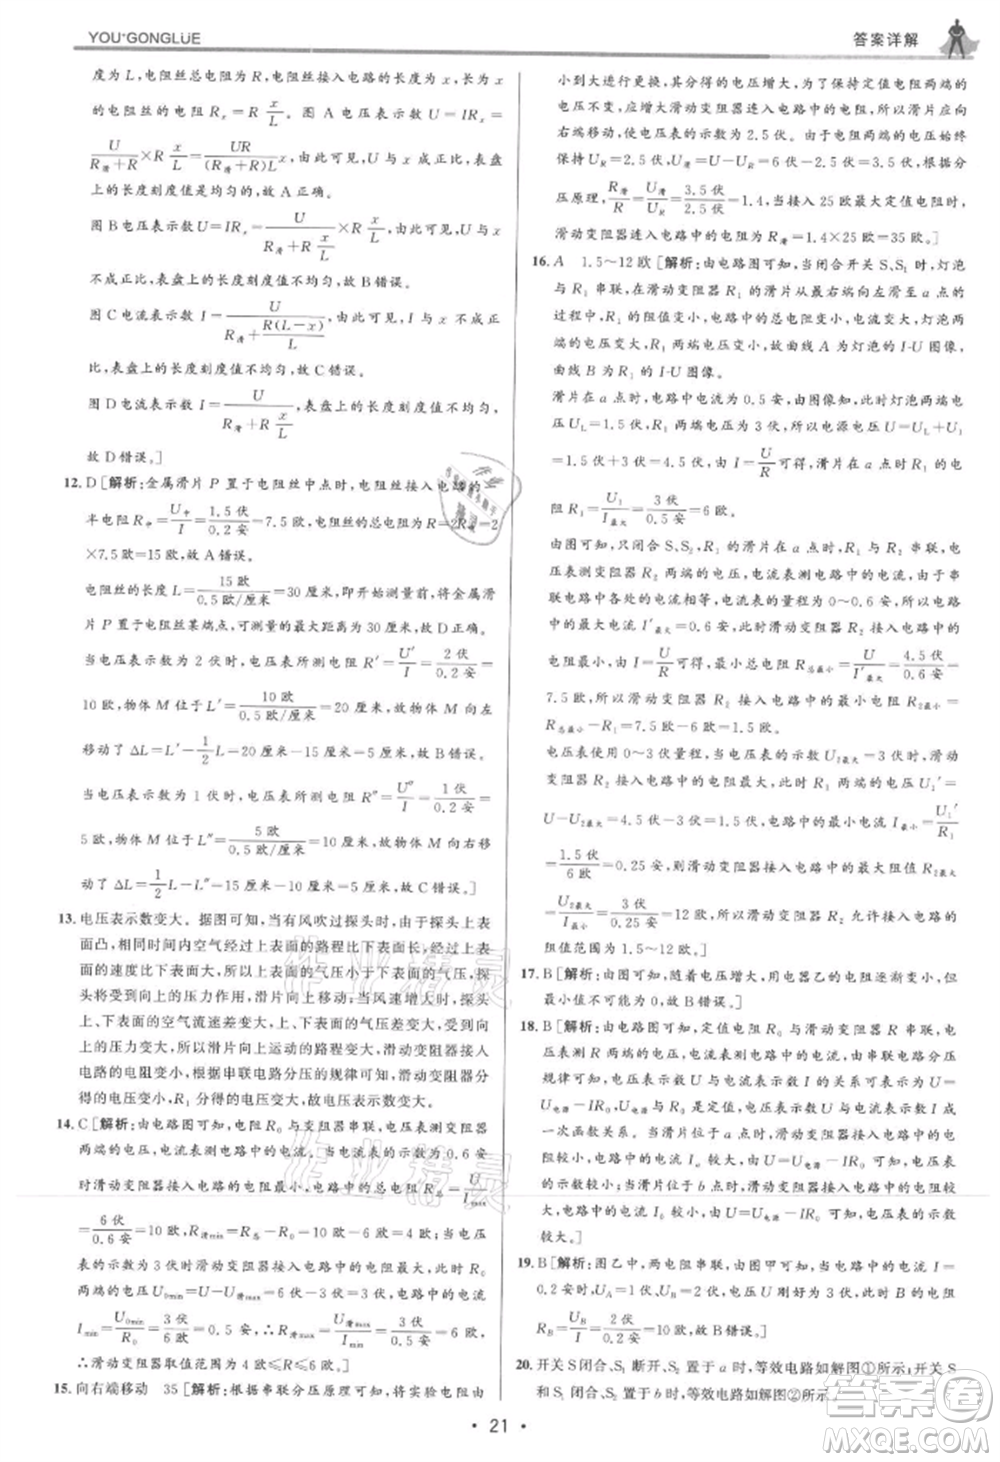 YOU+GONGLÜE
答案详解
度为 L,电阻丝的总电阻为 R,电阻丝接入电路的长度为 x 时
的电阻丝的电阻 Rx=R x/L。图 A 电压表示数 U=IRx=
U/(R滑+R)×R x/L=UR/((R滑+R)L)x,由此可见,U 与 x 成正比,表盘
上的长度刻度值是均匀的,故 A 正确。
图 B 电压表示数 U=IRx=U/(R滑+R x/L) R x/L,由此可见,U 与 x
不成正比,表盘上的长度刻度值不均匀,故 B 错误。
图 C 电流表示数 I=U/(R滑+R(L-x)/L),由此可见,I 与 x 不成正
比,表盘上的长度刻度值不均匀,故 C 错误。
图 D 电流表示数 I=U/(R滑+R x/L),表盘上的长度刻度值不均匀,
故 D 错误。]
12. D [解析:金属滑片 P 置于电阻丝中点时,电阻丝接入电路的一
半电阻 R中=U中/I=1.5伏/0.2安=7.5 欧,电阻丝的总电阻 R=2R中=2
×7.5 欧=15 欧,故 A 错误。
电阻丝的长度 L=15 欧/0.5 欧/厘米=30 厘米,即开始测量前,将金属滑
片 P 置于电阻丝某端点,可测量的最大长度为 30 厘米,故 B 错误。
当电压表示数为 2 伏时,电压表所测电阻 R'=U'/I=2 伏/0.2 安=
10 欧,物体 M 位于 L'=10 欧/0.5 欧/厘米=20 厘米,故物体 M 向左
移动了 ΔL=L'-1/2L=20 厘米-1/2×30 厘米=5 厘米,故 D 正确。
当电压表示数为 1 伏时,电压表所测电阻 R"=U"/I=1 伏/0.2 安=
5 欧,物体 M 位于 L"=5 欧/0.5 欧/厘米=10 厘米,故物体 M 向右移
动了 ΔL=1/2L-L"=15 厘米-10 厘米=5 厘米,故 C 错误。]
13. 电压表示数变大。据图可知,当有风吹过探头时,由于探头上表
面凸,相同时间内空气经过上表面的路程比下表面大,上表面
的速度比下表面大,所以上表面的气压小于下表面的气压,探头
受到向上的压力作用,滑片向上移动。当风速增大时,探头
上、下表面的空气流速差变大,上下表面的气压差变大,向上的
压力变大,所以滑片向上运动的路程变大,滑动变阻器接入
电路的电阻变小,根据串联电路分压的规律可知,滑动变阻器分
得的电压变小,R₁ 分得的电压变大,故电压表示数变大。
14. C [解析:由电路图可知,电阻 R₀ 与滑动变阻器串联,电压表测定
值电阻两端的电压,电流表测电路中的电流。当电流表示数为 0.6 安
时滑动变阻器接入电路中的电阻最小,电路中的总电阻 R总=U/Imax
=6 伏/0.6 安=10 欧,R滑min=R总-R₀=10 欧-6 欧=4 欧;当电压
表的示数为 3 伏时滑动变阻器接入电路中的电阻最大,R₀
两端的电压 U0min=U-U滑max=6 伏-3 伏=3 伏,电路中的电流
Imin=U0min/R₀=3 伏/6 欧=0.5 安,∴R滑max=U滑max/Imin=3 伏/0.5 安=6 欧,
∴滑动变阻器取值范围为 4 欧≤R≤6 欧。]
15. 向右端移动 35 [解析:根据串联分压原理可知,将定值电阻由
小到大进行更换,其分得的电压增大,为了保持定值电阻两端的
电压不变,应增大滑动变阻器连入电路中的电阻,所以滑片应向
右端移动,使电压表的示数为 2.5 伏。由于电阻两端的电压始终
保持 UR=2.5 伏,U滑=U-UR=6 伏-2.5 伏=3.5 伏,根据分
压原理,R滑/R=U滑/UR=3.5 伏/2.5 伏=1.4,当接入 25 欧最大定值电阻时,
滑动变阻器连入电路中的电阻为 R滑=1.4×25 欧=35 欧。]
16. A 1.5~12 欧[解析:由电路图可知,当闭合开关 S、S₁ 时,灯泡
与 R₁ 串联,在滑动变阻器 R₁ 的滑片从最右端移动到 a 点的
过程中,R₁ 的阻值变小,电路中的总电阻变小,电流变大,灯泡两
端的电压变大,R₁ 两端电压变小,故曲线 A 为灯泡的 I-U 图像。
曲线 B 为 R₁ 的 I-U 图像。
滑片在 a 点时,电路中的电流为 0.5 安,由图像可知,此时灯泡两端
电压 UL=1.5 伏,R₁ 两端电压为 3 伏,所以电源电压 U=UL+U₁
=1.5 伏+3 伏=4.5 伏,由 I=U/R 可知,滑片在 a 点时,R₁ 的阻
值 R₁=U₁/I最大=3 伏/0.5 安=6 欧。
由图可知,只闭合 S、S₂,R₁ 的滑片在 a 点时,R₁ 与 R₂ 串联,电
压表测变阻器 R₂ 两端的电压,电流表测电路中的电流。因为串
联电路中各处的电流相等,电流表的量程为 0~0.6 安,所以电路
中的最大电流 I'最大=0.6 安,此时滑动变阻器接入电路中的
电阻最小。由 I=U/R 可知,电路中的最小总电阻 R总最小=U/I'最大=4.5 伏/0.6 安=
7.5 欧,所以滑动变阻器 R₂ 接入电路中的最小阻值 R₂最小=
R总最小-R₁=7.5 欧-6 欧=1.5 欧。
电压表使用 0~3 伏量程,当电压表的示数 U₂最大=3 伏时,滑动变
阻器 R₂ 接入电路中的电阻最大,此时 R₁ 两端的电压 U₁'=
U-U₂最大=4.5 伏-3 伏=1.5 伏,电路中的电流 I最小=U₁'/R₁=
1.5 伏/6 欧=0.25 安,则滑动变阻器接入电路中的最大阻值 R₂最大
=U₂最大/I最小=3 伏/0.25 安=12 欧,故滑动变阻器 R₂ 允许接入电路的
阻值范围为 1.5~12 欧。]
17. B [解析:由图可知,随着电压增大,用电器乙的电阻逐渐变小,
故 B 错误。]
18. B [解析:由电路图可知,定值电阻 R₀ 与滑动变阻器 R 串联,电
压表测 R 两端的电压,电流表测电路中的电流,由串联电路分压
规律可知,U=U电源-IR₀,因为 R₀ 是定值电阻,所以 U 与 I 成
一次函数关系。当滑片位于 a 点时,滑动变阻器接入电路中的
电阻较小,电路中的电流 Ia 较大,U=U电源-IR₀ 可知,电压表
的示数较小;当滑片位于 b 点时,滑动变阻器接入电路中的电阻
较大,电路中的电流 Ib 较小,由 U=U电源-IR₀ 可知,电压表的示数
较大。]
19. B [解析:图乙中,两电阻串联,由图甲可知,当电路中电流为
0.2 安时,UA=1 伏,UB=2 伏,电压 U 刚好为 3 伏,符合要求,
RB=UB/I=2 伏/0.2 安=10 欧。]
20. 开关 S 闭合、S₁ 断开、S₂ 置于 a 时,等效电路如解图①所示;开关
S、S₁ 闭合,S₂ 置于 b 时,等效电路如解图②所示。
· 21 ·
作业精灵
作业精灵
答案圈
MXQE.COM